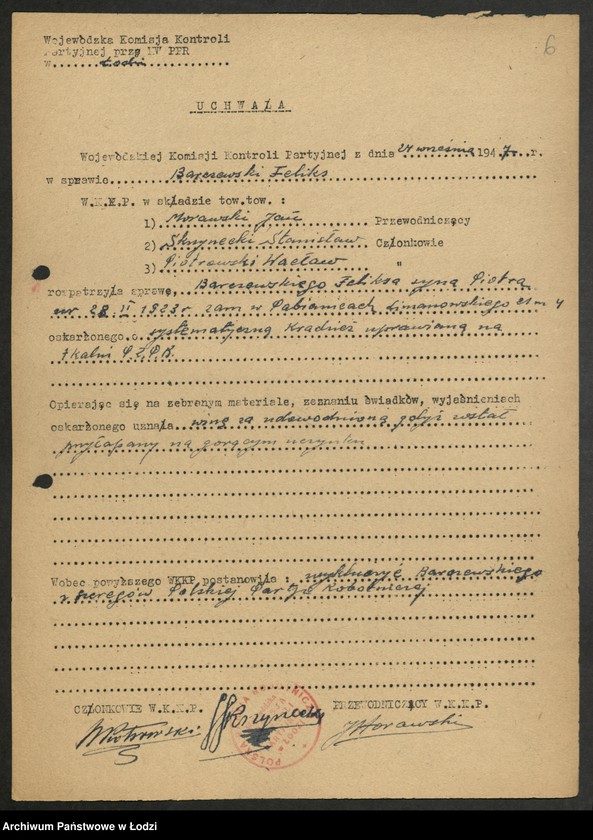 6
Wojewódzka Komisja Kontroli
Partyjnej przy KW PPR
w Łodzi
UCHWAŁA
Wojewódzkiej Komisji Kontroli Partyjnej z dnia 24 września 1947 r.
w sprawie Barczewski Feliks
W.K.K.P. w składzie tow.tow. :
1) Morawski Jan Przewodniczący
2) Skrynecki Stanisław Członkowie
3) Piotrowski Wacław "
rozpatrzyła sprawę, Barczewskiego Feliksa syna Piotra
ur 28 II 1923 r zam w Pabianicach Limanowskiego 21 m 4
oskarżonego o systematyczną kradzież uprawianą na
tkalni P.Z.P.B.
Opierając się na zebranym materiale, zeznaniu świadków, wyjaśnieniach
oskarżonego uznała winę za udowodnioną gdyż został
przyłapany na gorącym uczynku
Wobec powyższego WKKP postanowiła : wykluczyć Barczewskiego
z szeregów Polskiej Partji Robotniczej
CZŁONKOWIE W.K.K.P. PRZEWODNICZĄCY W.K.K.P.
WPiotrowski Skrynecki JMorawski
POLSKA
Archiwum Państwowe w Łodzi